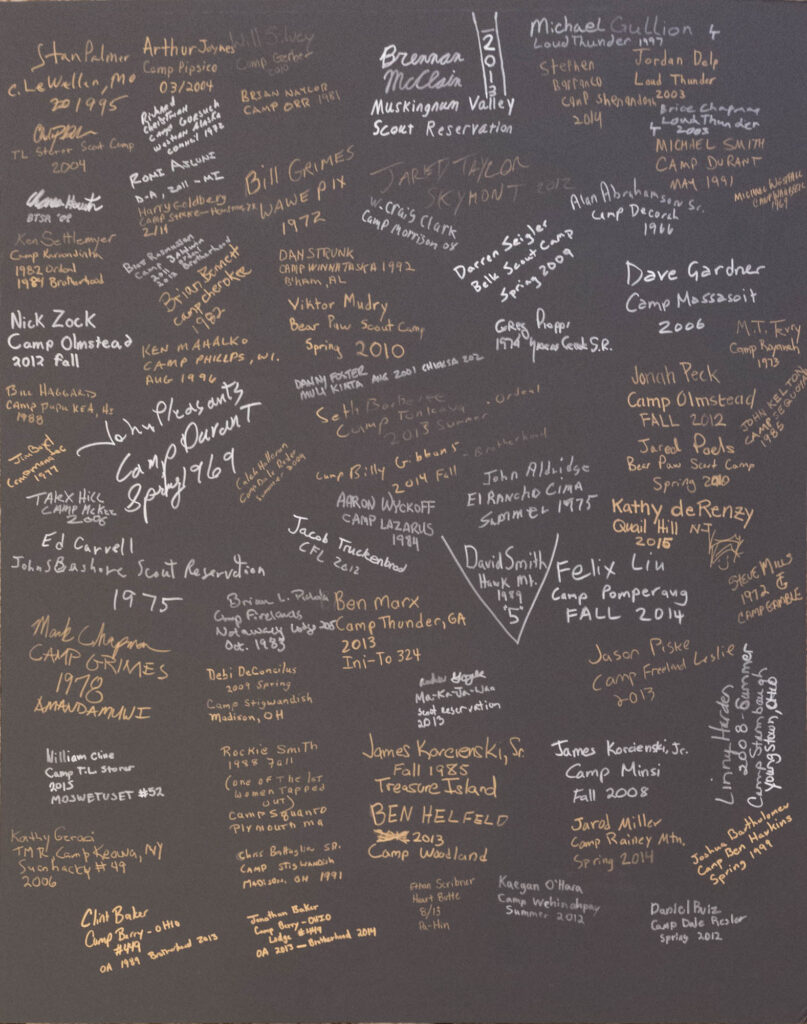 Stan Palmer
C. LeWellen, MO
1995
Arthur Jaynes
Camp Pipsico
03/2004
Will Silvey
Camp Gerber
2010
BRIAN NAYLOR
CAMP ORR 1981
Brennan
McClain
2013
Muskingnum Valley
Scout Reservation
Michael Gullion
Loud Thunder 1997
Stephen
Barranco
Camp Shenandoah
2014
Jordan Delp
Loud Thunder
2003
Brice Chapman
Loud Thunder
2003
MICHAEL SMITH
CAMP DURANT
MAY 1991
TL Storer Scout Camp
2004
Richard
Christman
Camp Gorsuch
Western Alaska
Council 1972
RONI AZLUNI
D-A, 2011 - MI
Harry Goldberg
Camp Strake - Houston, TX
2/11
Bill GRIMES
WAWE PIX
1972
JARED TAYLOR
SKYMONT 2012
W. Craig Clark
Camp Morrison 08
Alan Abrahamson Sr.
Camp Decorah
1966
MICHAEL
1969
BTSR '08
Ken Settlemyer
Camp
1982 Ordeal
1984 Brotherhood
Camp Baldwin
2011 Ordeal
2013 Brotherhood
Brian Bennett
Camp Cherokee
1982
DAN STRUNK
CAMP WINNATASKA 1992
B'ham, AL
Darren Seigler
Belk Scout Camp
Spring 2009
Dave Gardner
Camp Massasoit
2006
Nick Zock
Camp Olmstead
2012 Fall
KEN MAHALKO
CAMP PHILLPS, WI.
AUG 1996
Viktor Mudry
Bear Paw Scout Camp
Spring 2010
Greg
1974 Yawgoog S.R.
M.T. Terry
Camp
1973
BILL HAGGARD
CAMP PUPUKEA, HI
1988
DANNY FOSTER
AUG 2001
John Pleasants
Camp DuranT
Spring 1969
Seth
Ordeal
Camp Tonkawa
2013 Summer
Jonah Peck
Camp Olmstead
FALL 2012
JOHN KELTON
CAMP SEQUOYAH
1985
1977
Caleb Halloran
Summer 2009
Camp Billy Gibbons
2014 Fall - Brotherhood
Jared Poels
Bear Paw Scout Camp
Spring 2010
TALEX HILL
CAMP McKEE
2006
AARON WYCKOFF
CAMP LAZARUS
1984
John Aldridge
El Rancho Cima
Summer 1975
Kathy deRenzy
Quail Hill NJ
2015
Ed Carvell
John S Bashore Scout Reservation
1975
Jacob Truckenbrod
CFL 2012
David Smith
Hawk Mt.
1989
"5"
Felix Liu
Camp Pomperaug
FALL 2014
STEVE MILLS
1972
CAMP GAMBLE
Mark Chapman
CAMP GRIMES
1978
Brian L.
Camp Firelands
Oct. 1983
Ben Marx
Camp Thunder, GA
2013
Ini-To 324
Jason Piske
Camp Freeland Leslie
2013
Debi DeConcilus
2009 Spring
Camp Stigwandish
Madison, OH
Ma-Ka-Ja-Wan
Scout Reservation
2013
Linny Harden
2008 - Summer
Camp Stambaugh
Youngstown, OHIO
William Cline
Camp T.L. Storer
2015
MOSWETUSET #52
Rockie Smith
1988 Fall
(one of the 1st
Women Tapped
out)
Camp Squanto
Plymouth Ma
James Korcienski, Sr.
Fall 1985
Treasure Island
James Korcienski, Jr.
Camp Minsi
Fall 2008
BEN HELFELD
2013
Camp Woodland
Jarod Miller
Camp Rainey Mtn.
Spring 2014
Joshua Bartholomew
Camp Ben Hawkins
Spring 1999
Kathy Geraci
TMR, Camp Keowa, NY
Suanhacky #49
2006
Chris Battaglia SR.
Camp Stigwandish
Madison, OH 1991
Ethan Scribner
Heart Butte
8/13
Pa-Hin
Keegan O'Hara
Camp Wehinahpay
Summer 2012
Daniel Ruiz
Camp Dale Resler
Spring 2012
Clint Baker
Camp Berry - OHIO
#449
OA 1989 Brotherhood 2013
Jonathan Baker
Camp Berry - OHIO
Lodge #449
OA 2013 - Brotherhood 2014